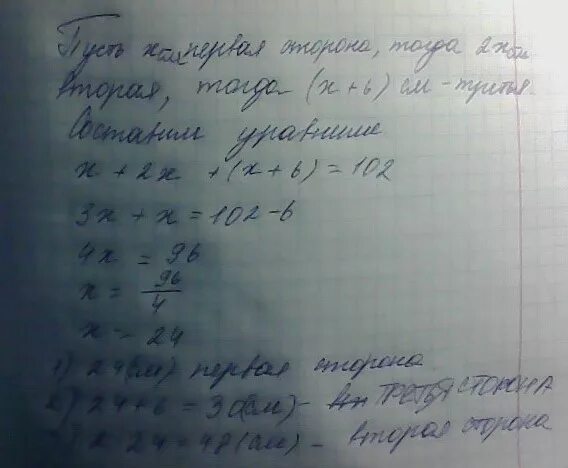 Пусть х см первая сторона, тогда 2х см
вторая, тогда (х+6) см - третья.
Составим уравнение
х + 2х + (х + 6) = 102
3х + х = 102 - 6
4х = 96
х = 96/4
х = 24
1) 24(см) первая сторона
2) 24 + 6 = 30(см) - ТРЕТЬЯ СТОРОНА
24 = 48 (см) - вторая сторона